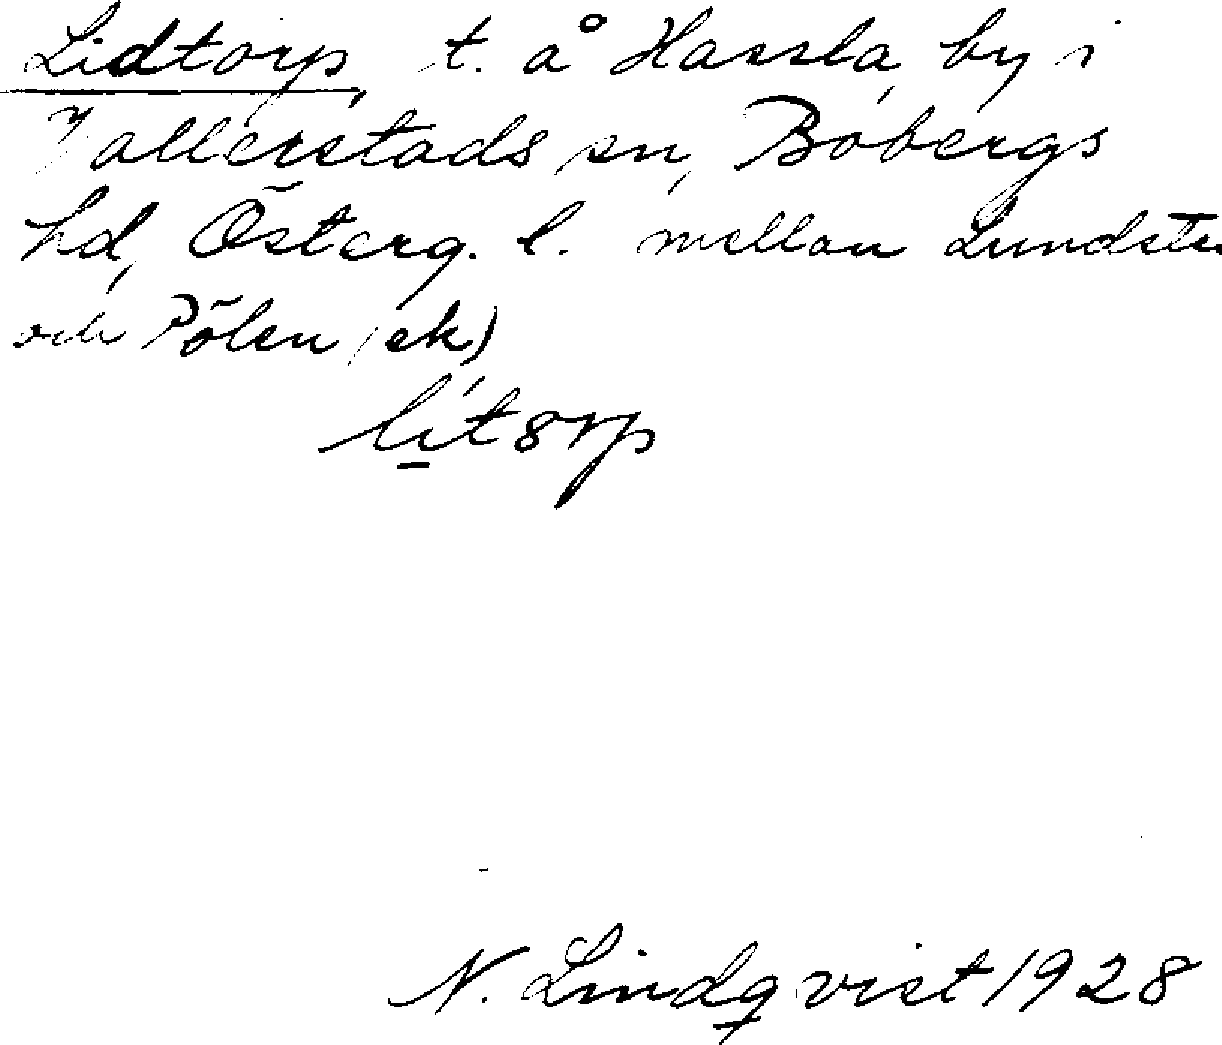 Lidtorp, t. å Hassla, by i
Vallerstads sn, Bobergs
hd, Österg. l. mellan Lundste
och Pölen (ek)
lítorp
N. Lindqvist 1928